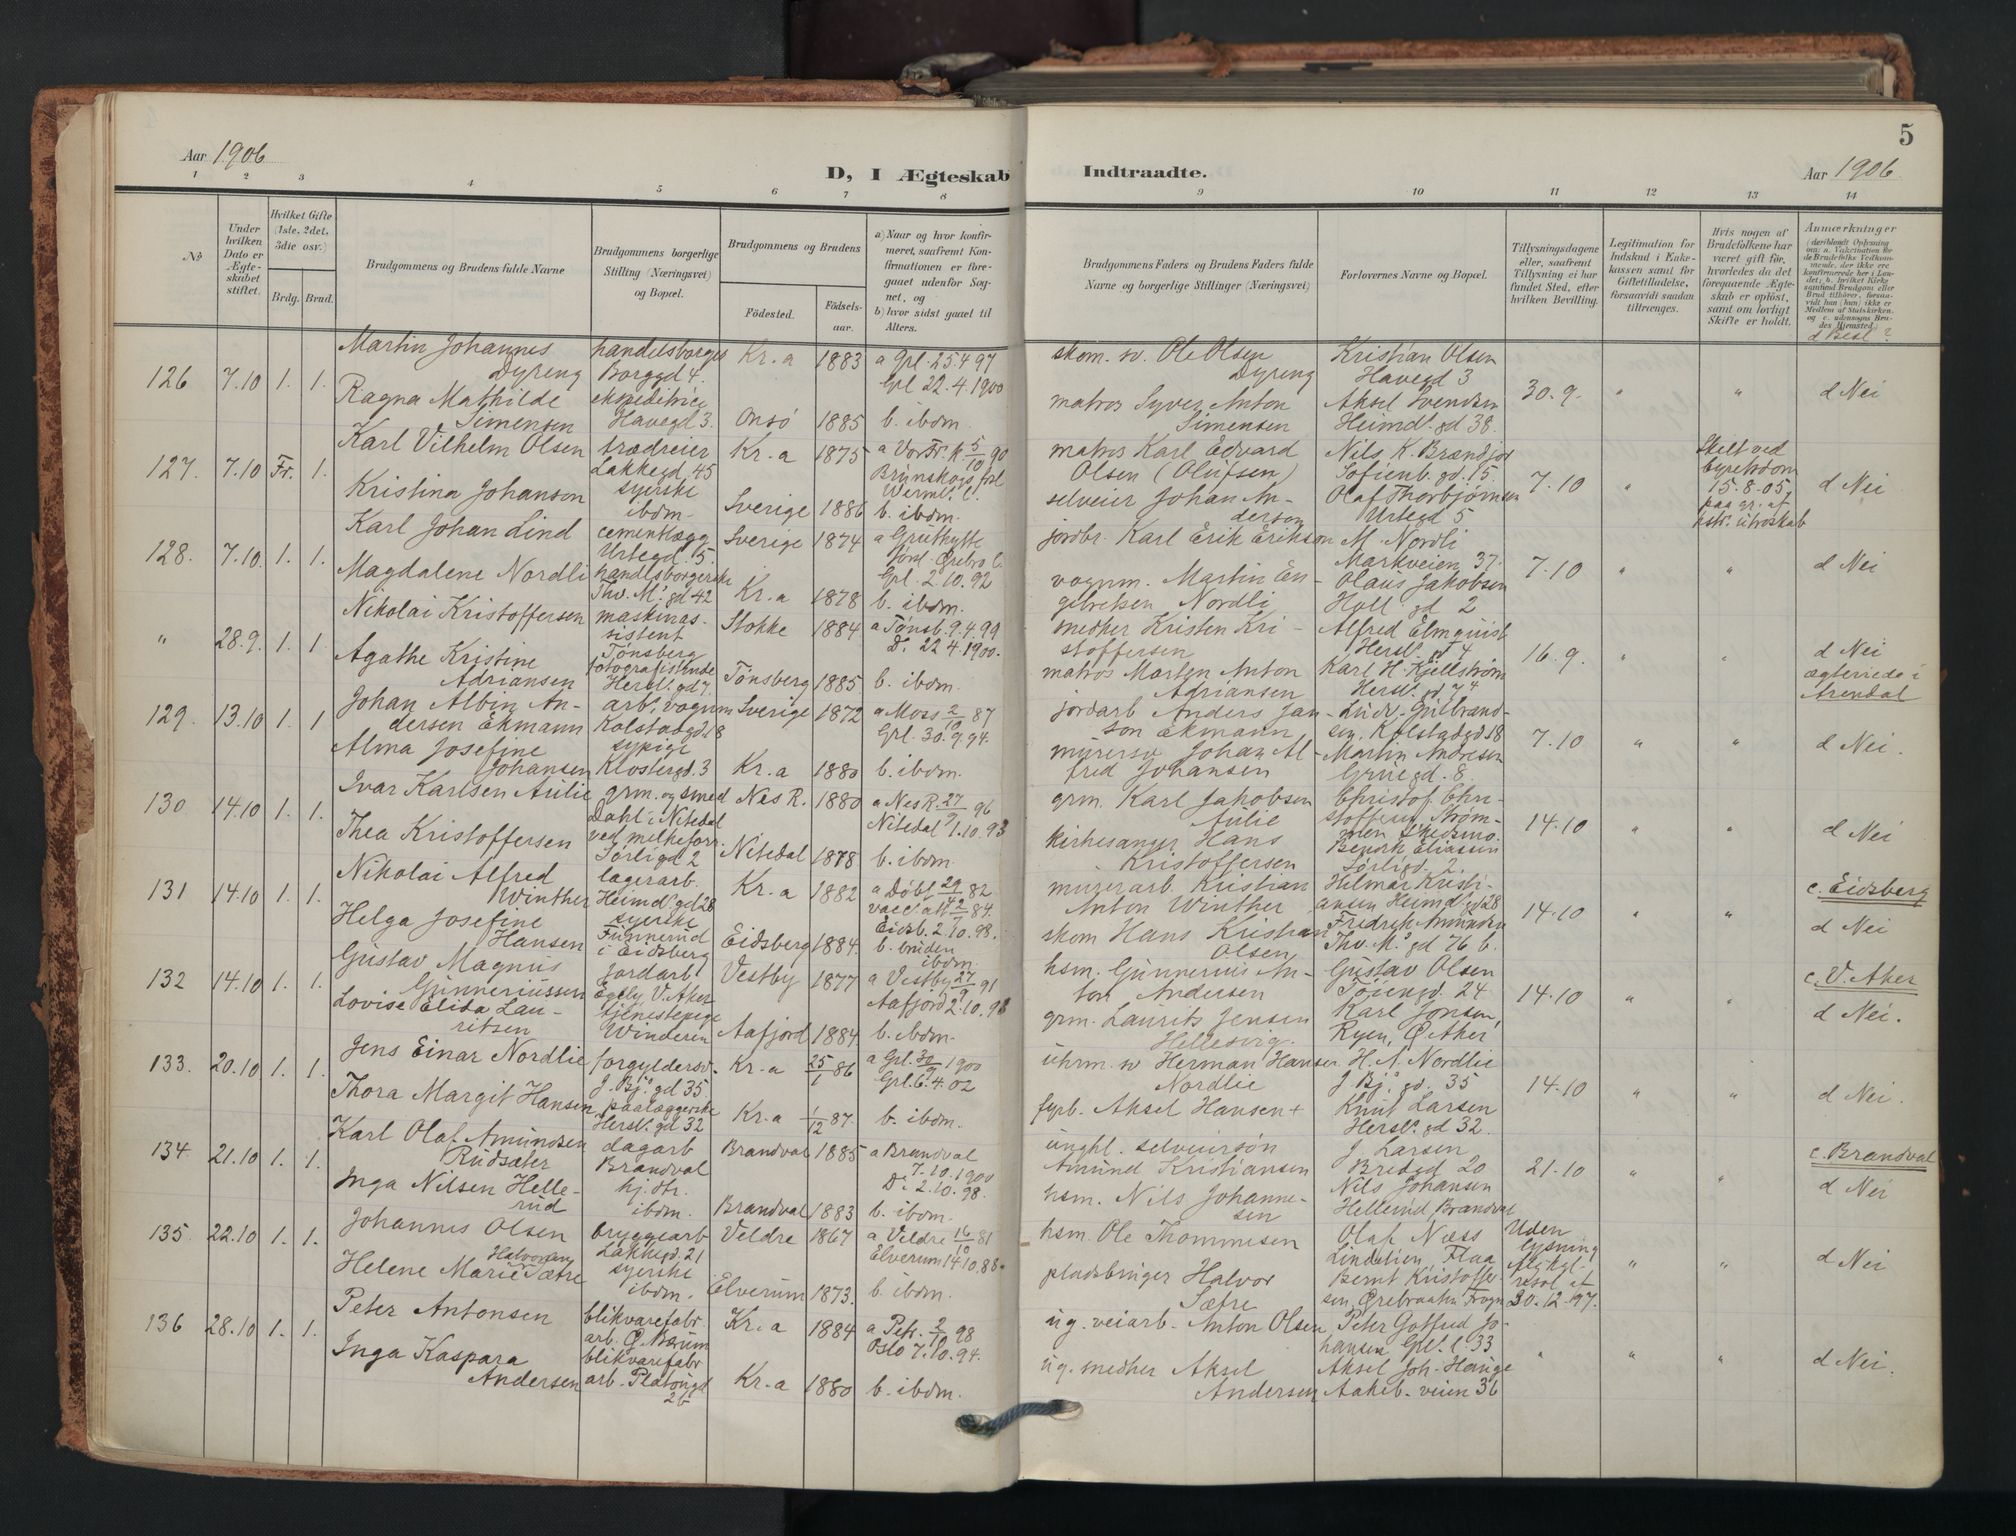 5
Aar 1906
D, I Ægteskab Indtraadte.
Aar 1906
1 2 3 4 5 6 7 8 9 10 11 12 13 14
№
Under hvilken Dato er Ægteskabet stiftet.
Hvilket Gifte (1ste, 2det, 3die osv.)
Brdg. Brud.
Brudgommens og Brudens fulde Navne
Brudgommens borgerlige Stilling (Næringsvei) og Bopæl.
Brudgommens og Brudens
Fødested.
Fødselsaar.
a) Naar og hvor konfirmeret, saafremt Konfirmationen er foregaaet udenfor Sognet, og
b) hvor sidst gaaet til Alters.
Brudgommens Faders og Brudens Faders fulde Navne og borgerlige Stillinger (Næringsvei)
Forlovernes Navne og Bopæl.
Tillysningsdagene eller, saafremt Tillysning ei har fundet Sted, efter hvilken Bevilling.
Legitimation for Indskud i Enkekassen samt for Giftetilladelse, forsaavidt saadan tiltrænges.
Hvis nogen af Brudefolkene har været gift før, hvorledes da det foregaaende Ægteskab er opløst, samt om lovligt Skifte er holdt.
Anmærkninger
d Besl?
126 7.10 1. 1.
Martin Johannes Dyreng
handelsborger Borggd 4.
Kr.a 1883
a Grl. 25.4 97
Grl 22.4.1900
skom. sv. Ole Olsen Dyreng
Kristian Olsen Havegd 3
30.9. " " d Nei
Ragna Mathilde Simensen
ekspeditrice Havegd 3.
Onsø 1885 b. ibdm.
matros Syver Anton Simensen
Aksel Svendsen Heimd. gd 38.
127. 7.10 Fr. 1.
Karl Vilhelm Olsen
trædreier Lakkegd. 45
Kr.a 1875
a Vor Fr. K. 5/10 90
Brunskogs fsl Werml. l.
matros Karl Edvard Olsen (Olufsen)
Nils K. Brændjor Sofienb. gd. 15.
7.10 "
Skilt ved byretsdom 15.8.05, paa gr. af hstr. utroskab
d Nei
Kristina Johanson
syerske ibdm-
Sverige 1886 b. ibdm.
selveier Johan Anderson
Olaf Thorbjørnsen Urtegd 5
128. 7.10. 1. 1.
Karl Johan Lind
cementlægg Urtegd. 5.
Sverige 1874
a Gruthytte førd. Ørebro l.
Grl. 2.10.92
jordbr. Karl Erik Erikson
M. Nordli Markveien 37.
7.10 " " d Nei
Magdalene Nordli
handlsborgerske Thv. M. gd 42
Kr.a 1878 b. ibdm.
vognm. Martin Engebretsen Nordli
Olaus Jakobsen Holl. gd 2
" 28.9. 1. 1.
Nikolai Kristoffersen
maskinassistent Tønsberg
Stokke 1884
a Tønsb. 9.4.99
Do 22.4.1900.
snedker Kristen Kristoffersen
Alfred Elmquist Hersl. gd 4
16.9. " " d Nei
ægteviede i Arendal
Agathe Kristine Adriansen
fotografistinde Hersl. gd 7.
Tønsberg 1885 b. ibdm.
matros Morten Anton Adriansen
Karl H. Kjellstrøm Hersl. gd. 7 4
129. 13.10 1. 1
Johan Albin Andersen Ekmann
arb. vognm Kolstadgd 18
Sverige 1872
a Moss 2/10 87
Grl. 30.9.94.
jordarb Anders Janson Ekmann
Ludv. Gulbrandsen, Kolstadgd 18
7.10 " " d Nei.
Alma Josefine Johansen
sypige Klostergd. 3
Kr.a 1880 b. ibdm.
murersv Johan Alfred Johansen
Martin Andresen Gruegd. 8.
130. 14.10 1. 1.
Ivar Karlsen Aulie
grm. og smed Dahl i Nitedal
Nes R. 1880
a Nes R. 27/9 96
Nitedal 1.10.93
grm. Karl Jakobsen Aulie
Christof. Christoffersen Strømmen Skedsmo.
14.10 " " d Nei
Thea Kristoffersen
ved melkeforr. Sørligd 2
Nitedal 1878 b. ibdm.
kirkesanger Hans Kristoffersen
Bendik Eliassen Sørligd. 2.
131 14.10 1. 1.
Nikolai Alfred Winther
lagerarb. Heimd. gd 28
Kr.a 1882
a Døbt 29/4 82
vacc. att 2/7 84.
Eidsb. 2.10.98.
murerarb. Kristian Anton Winther
Hilmar Kristiansen Heimd. gd 28
14.10 " "
c. Eidsberg
d Nei
Helga Josefine Hansen
syerske Funnerud i Eidsberg
Eidsberg 1884. b. bruden ibdm.
skom Hans Kristian Olsen
Fredrik Amundsen Thv. M. gd 76 b.
132 14.10 1. 1.
Gustav Magnus Gunneriussen
jordarb Egely V. Aker
Vestby 1877
a Vestby 27/9 91
Aafjord 2.10.98
hsm. Gunnerius Anton Andersen
Gustav Olsen Tøiengd. 24
14.10 " "
c. V. Aker
d Nei.
Lovise Elida Lauritsen
tjenestepige Winderen
Aafjord 1884 b. ibdm.
grm. Laurits Jensen Hellesvig.
Karl Jonsen, Ryen, Ø. Aker
133. 20.10 1. 1.
Jens Einar Nordlie
forgyldersv. J. Bj. gd 35
Kr.a 25/1 86
a Grl. 30/9 1900
Grl. 6.4.02
uhrm. sv Herman Hansen Nordlie
H. A. Nordlie J. Bj. gd. 35
14.10 " " d Nei.
Thora Margit Hansen
paalæggerske Hersl. gd 32
Kr.a 1/12 87. b. ibdm.
fyrb. Aksel Hansen +
Knut Larsen Hersl. gd 32.
134. 21.10 1. 1.
Karl Olaf Amundsen Rudsæter
dagarb Brandval
Brandval 1885
a Brandval 7.10.1900
Do 2.10.98.
unghl. selveiersøn Amund Kristiansen
J. Larsen Bredgd 20
21.10 " "
c. Brandval
d Nei
Inga Nilsen Hellerud
hj. dtr. ibdm.
Brandval 1883 b. ibdm.
hsm. Nils Johannesen
Nils Johansen Hellerud, Brandval
135. 22.10 1. 1.
Johannes Olsen
bryggearb Lakkegd. 21
Veldre 1867
a Veldre 16/10 81
Elverum 14.10.88.
hsm. Ole Thommesen
Olaf Næss Lindelien, Flaa
Uden lysning ifl. kgl. resol af 30.12.197.
" " d Nei
Helene Marie Halvorsen Sætre
syerske ibdm.
Elverum 1873. b. ibdm.
pladsbruger Halvor Sætre
Bernt Kristoffersen, Ørebraaten Frogn
136 28.10 1. 1.
Peter Antonsen
blikvarefabr. arb. Ø. Bærum
Kr.a 1884
a Petr. 2/10 98
Oslo 7.10.94.
ug. veiarb. Anton Olsen
Peter Gotfred Johansen Grl. l. 33
" " " d Nei.
Inga Kaspara Andersen
blikvarefabr arb. Platougd 2b
Kr.a 1880 b. ibdm.
ug. snedker Aksel Andersen
Aksel Joh. Hauge Aakeb. veien 36